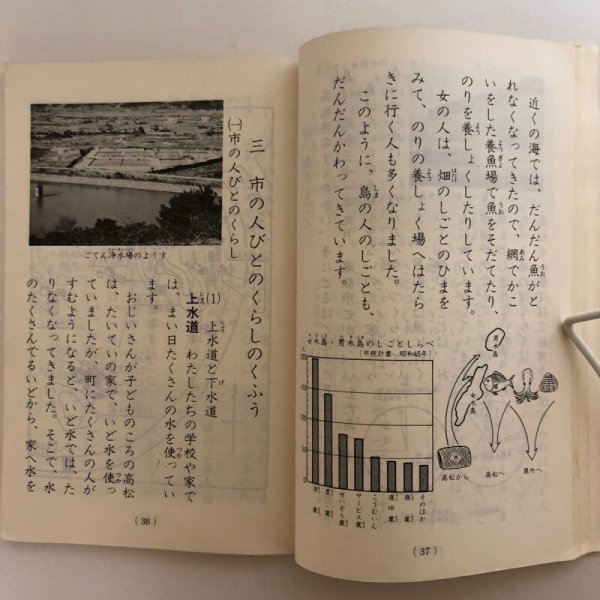 近くの海では、だんだん魚がと
れなくなってきたので、網でかこ
いをした養魚場で魚をそだてたり、
のりを養しょくしたりしています。
女の人は、畑のしごとのひまを
みて、のりの養しょく場へはたら
きに行く人も多くなりました。
このように、島の人のしごとも、
だんだんかわってきています。
女木島・男木島のしごとしらべ
(市統計書、昭和45年)
200
150
100
50
0
農業
せいぞう業
サービス業
こうむいん
運ゆ業
商業
そのほか
男木島
女木島
高松から
高松へ
県外へ
(37)
三 市の人びとのくらしのくふう
㈠市の人びとのくらし
ごてん浄水場のようす
(1) 上水道と下水道
上水道 わたしたちの学校や家で
は、まい日たくさんの水を使ってい
ます。
おじいさんが子どものころの高松
は、たいていの家で、いど水を使っ
ていましたが、町にたくさんの人が
すむようになると、いど水では、た
りなくなってきました。そこで、水
のたくさんでるいどから、家へ水を
(38)